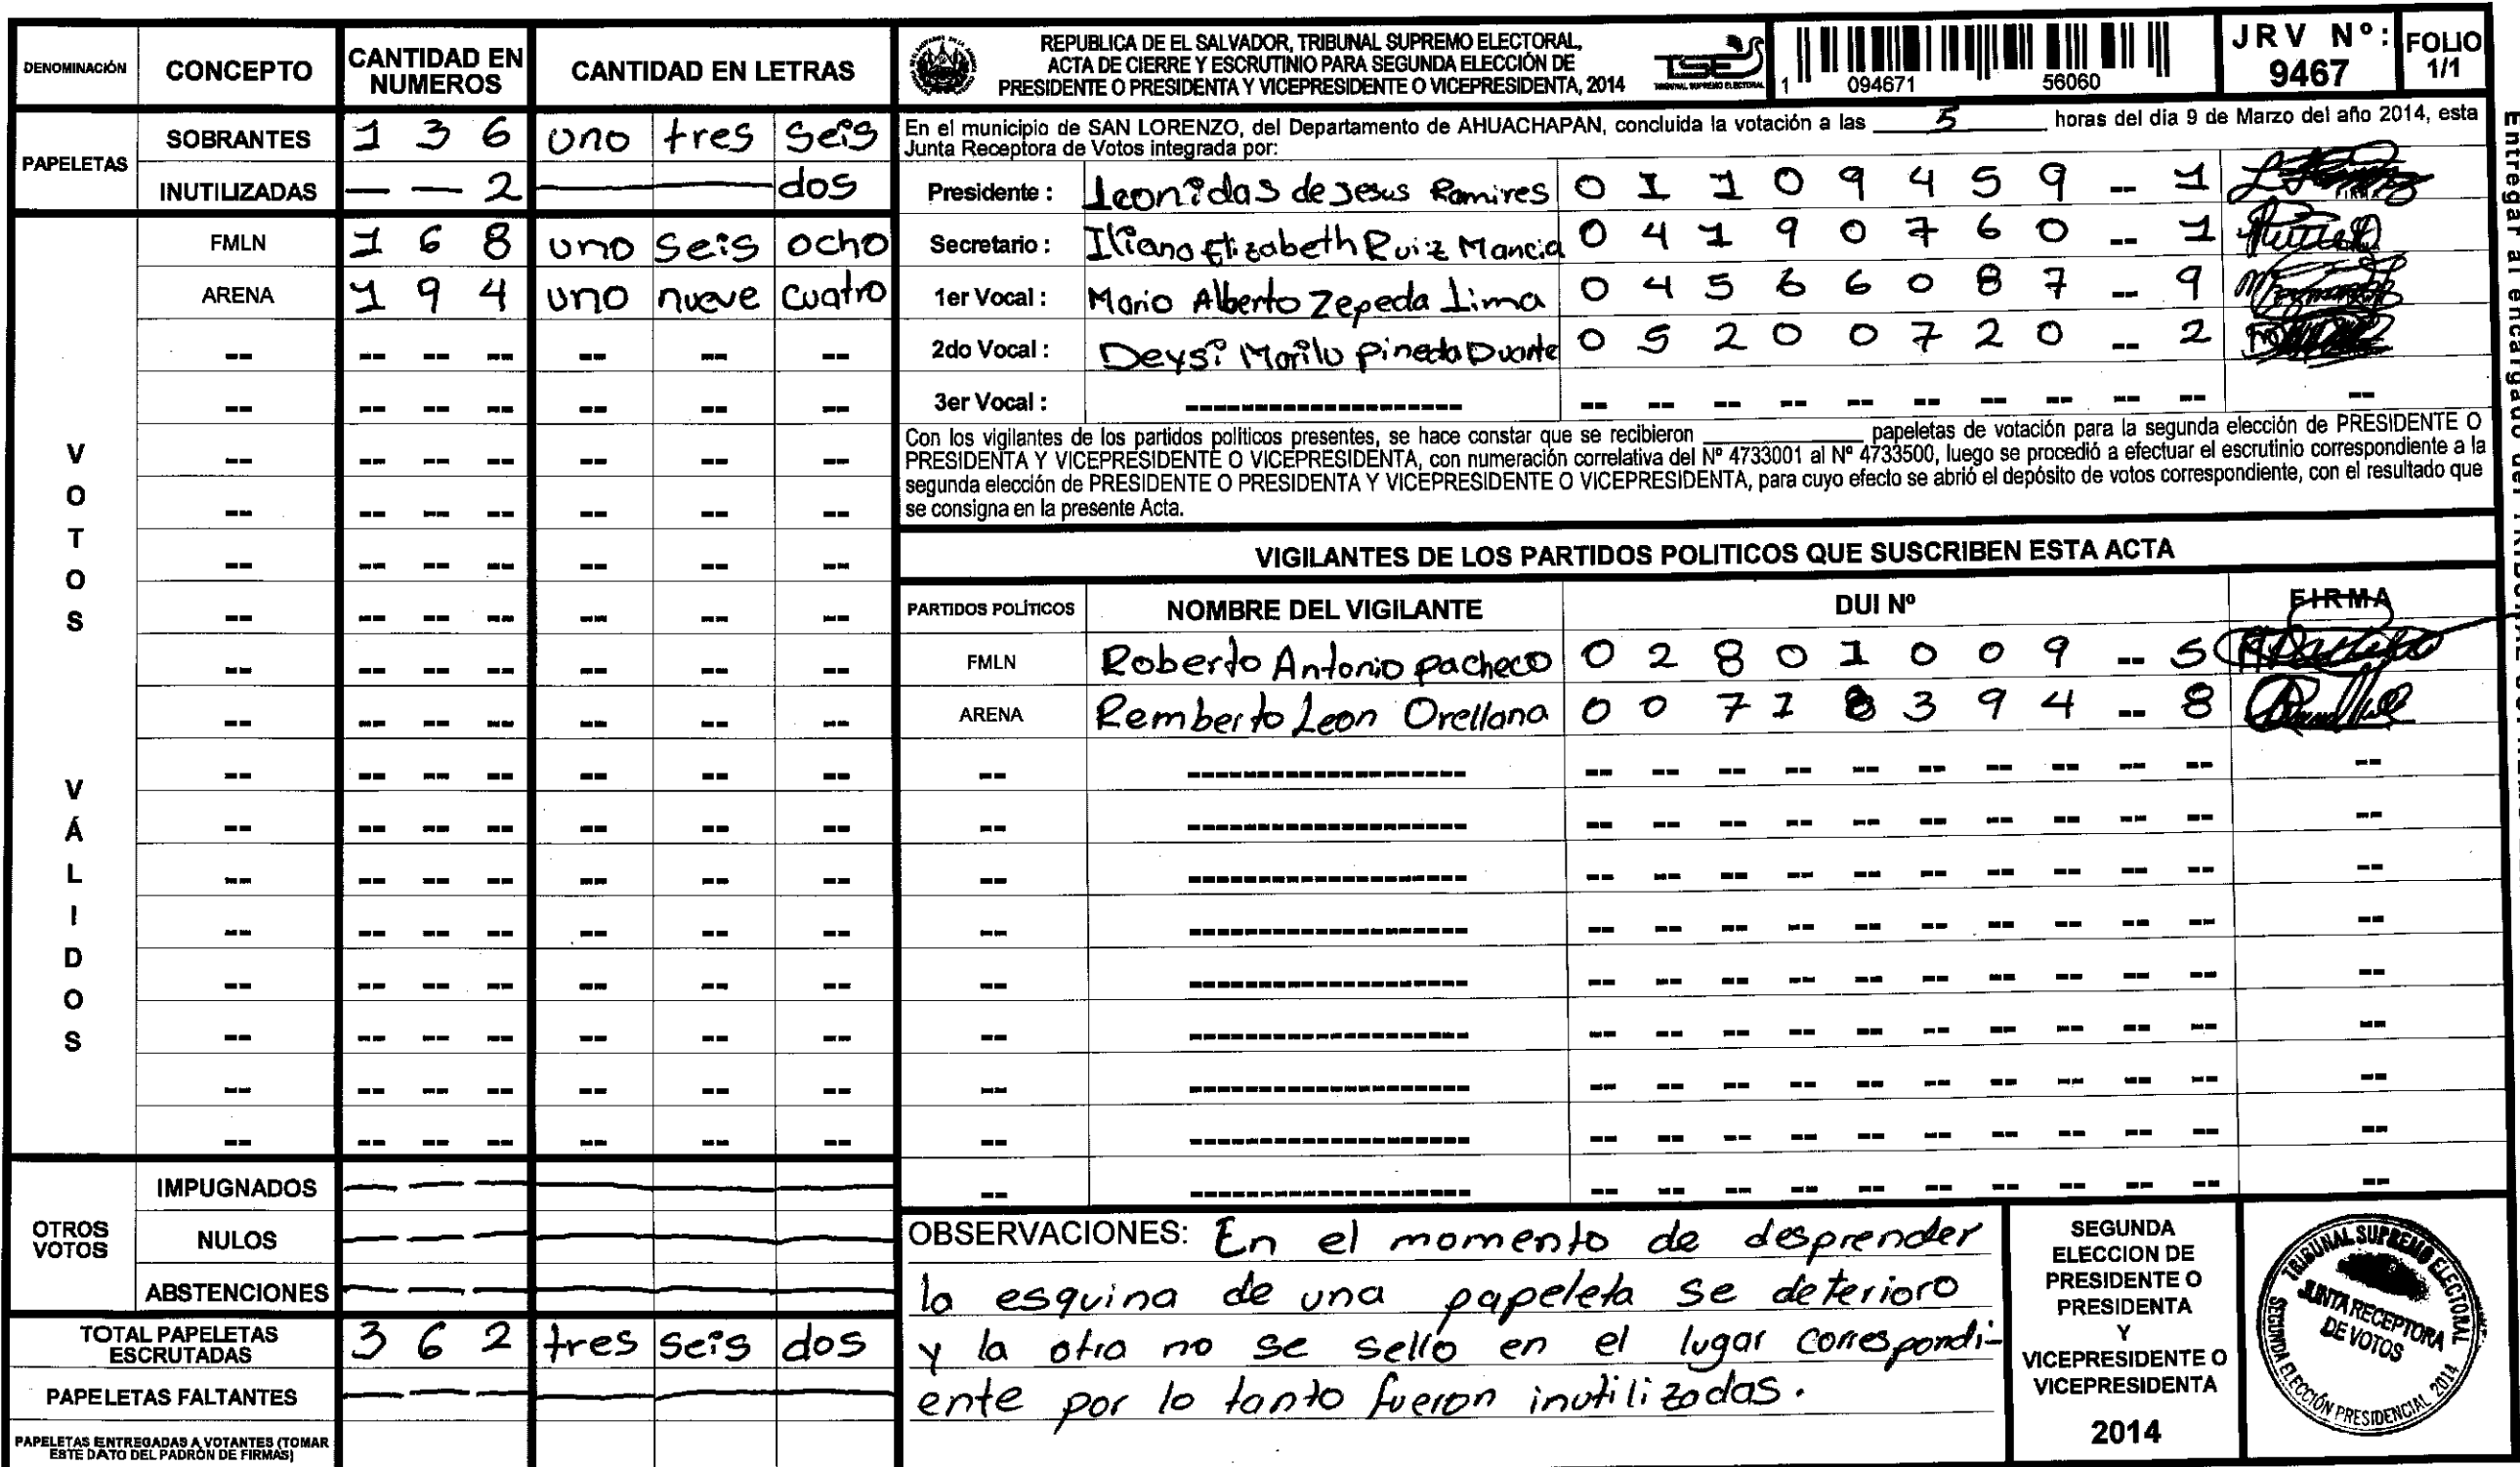 DENOMINACIÓN CONCEPTO CANTIDAD EN NUMEROS CANTIDAD EN LETRAS
PAPELETAS
SOBRANTES 1 3 6 uno tres seis
INUTILIZADAS — — 2 dos
VOTOS VÁLIDOS
FMLN 1 6 8 uno seis ocho
ARENA 1 9 4 uno nueve cuatro
OTROS VOTOS
IMPUGNADOS — — —
NULOS — — —
ABSTENCIONES — — —
TOTAL PAPELETAS ESCRUTADAS 3 6 2 tres seis dos
PAPELETAS FALTANTES — — —
PAPELETAS ENTREGADAS A VOTANTES (TOMAR
ESTE DATO DEL PADRÓN DE FIRMAS)
REPUBLICA DE EL SALVADOR, TRIBUNAL SUPREMO ELECTORAL,
ACTA DE CIERRE Y ESCRUTINIO PARA SEGUNDA ELECCIÓN DE
PRESIDENTE O PRESIDENTA Y VICEPRESIDENTE O VICEPRESIDENTA, 2014
TSE
TRIBUNAL SUPREMO ELECTORAL
1 094671 56060
JRV Nº: 9467
FOLIO 1/1
En el municipio de SAN LORENZO, del Departamento de AHUACHAPAN, concluida la votación a las 5 horas del dia 9 de Marzo del año 2014, esta
Junta Receptora de Votos integrada por:
Presidente : Leonidas de Jesus Ramires 0 1 1 0 9 4 5 9 -- 1
Secretario : Iliana Elizabeth Ruiz Mancia 0 4 1 9 0 7 6 0 -- 1
1er Vocal : Mario Alberto Zepeda Lima 0 4 5 6 6 0 8 7 -- 9
2do Vocal : Deysi Marilu Pineda Duarte 0 5 2 0 0 7 2 0 -- 2
3er Vocal :
Con los vigilantes de los partidos politicos presentes, se hace constar que se recibieron ________ papeletas de votación para la segunda elección de PRESIDENTE O
PRESIDENTA Y VICEPRESIDENTE O VICEPRESIDENTA, con numeración correlativa del Nº 4733001 al Nº 4733500, luego se procedió a efectuar el escrutinio correspondiente a la
segunda elección de PRESIDENTE O PRESIDENTA Y VICEPRESIDENTE O VICEPRESIDENTA, para cuyo efecto se abrió el depósito de votos correspondiente, con el resultado que
se consigna en la presente Acta.
VIGILANTES DE LOS PARTIDOS POLITICOS QUE SUSCRIBEN ESTA ACTA
PARTIDOS POLÍTICOS NOMBRE DEL VIGILANTE DUI Nº FIRMA
FMLN Roberto Antonio pacheco 0 2 8 0 1 0 0 9 -- 5
ARENA Remberto Leon Orellana 0 0 7 1 8 3 9 4 -- 8
OBSERVACIONES: En el momento de desprender
la esquina de una papeleta se deterioro
y la otra no se sello en el lugar correspondi-
ente por lo tanto fueron inutilizadas.
SEGUNDA
ELECCION DE
PRESIDENTE O
PRESIDENTA
Y
VICEPRESIDENTE O
VICEPRESIDENTA
2014
TRIBUNAL SUPREMO ELECTORAL
JUNTA RECEPTORA
DE VOTOS
SEGUNDA ELECCIÓN PRESIDENCIAL 2014
Entregar al encargado del